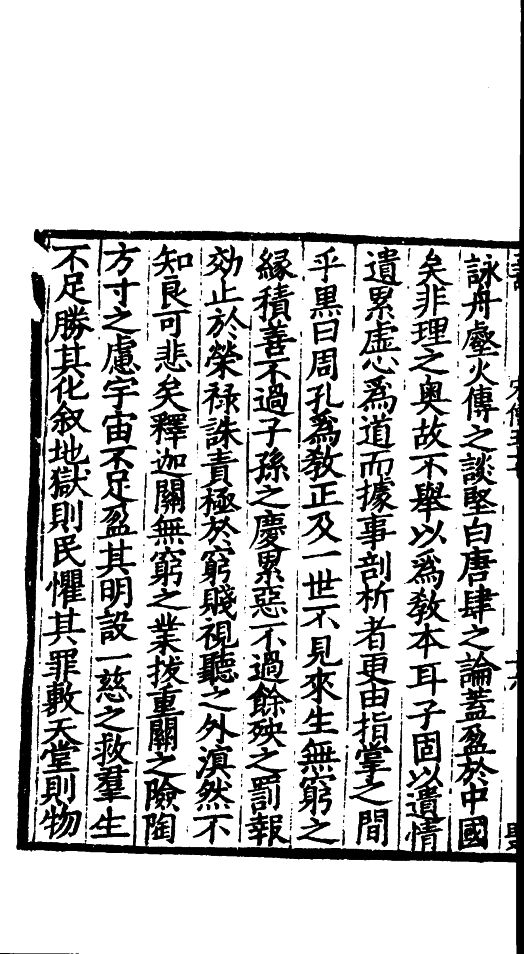 詠舟壑火傳之談堅白唐肆之論蓋盈於中國
矣非理之奧故不舉以為教本耳子固以遺情
遺累虛心為道而據事剖析者更由指掌之間
乎黑曰周孔為教正及一世不見來生無窮之
緣積善不過子孫之慶累惡不過餘殃之罰報
効止於榮祿誅責極於窮賤視聽之外滇然不
知良可悲矣釋迦關無窮之業拔重關之險陶
方寸之慮宇宙不足盈其明設一慈之救羣生
不足勝其化叙地獄則民懼其罪敷天堂則物